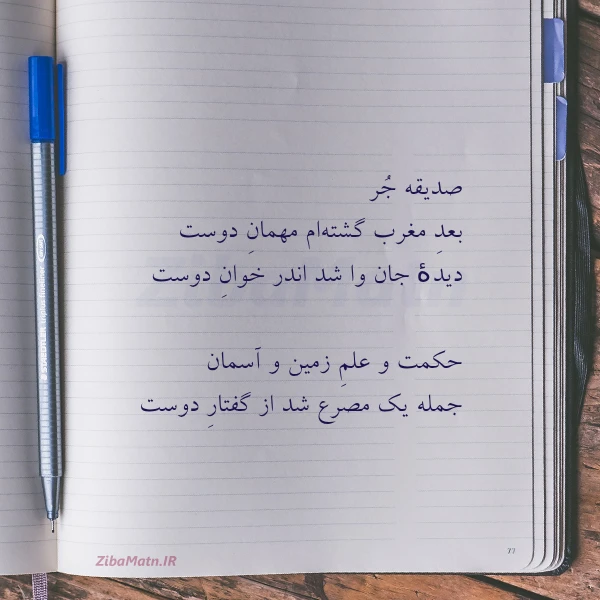 صدیقه جُر
بعدِ مغرب گشته‌ام مهمانِ دوست
دیدهٔ جان وا شد اندر خوانِ دوست
حکمت و علمِ زمین و آسمان
جمله یک مصرع شد از گفتارِ دوست
ZibaMatn.IR